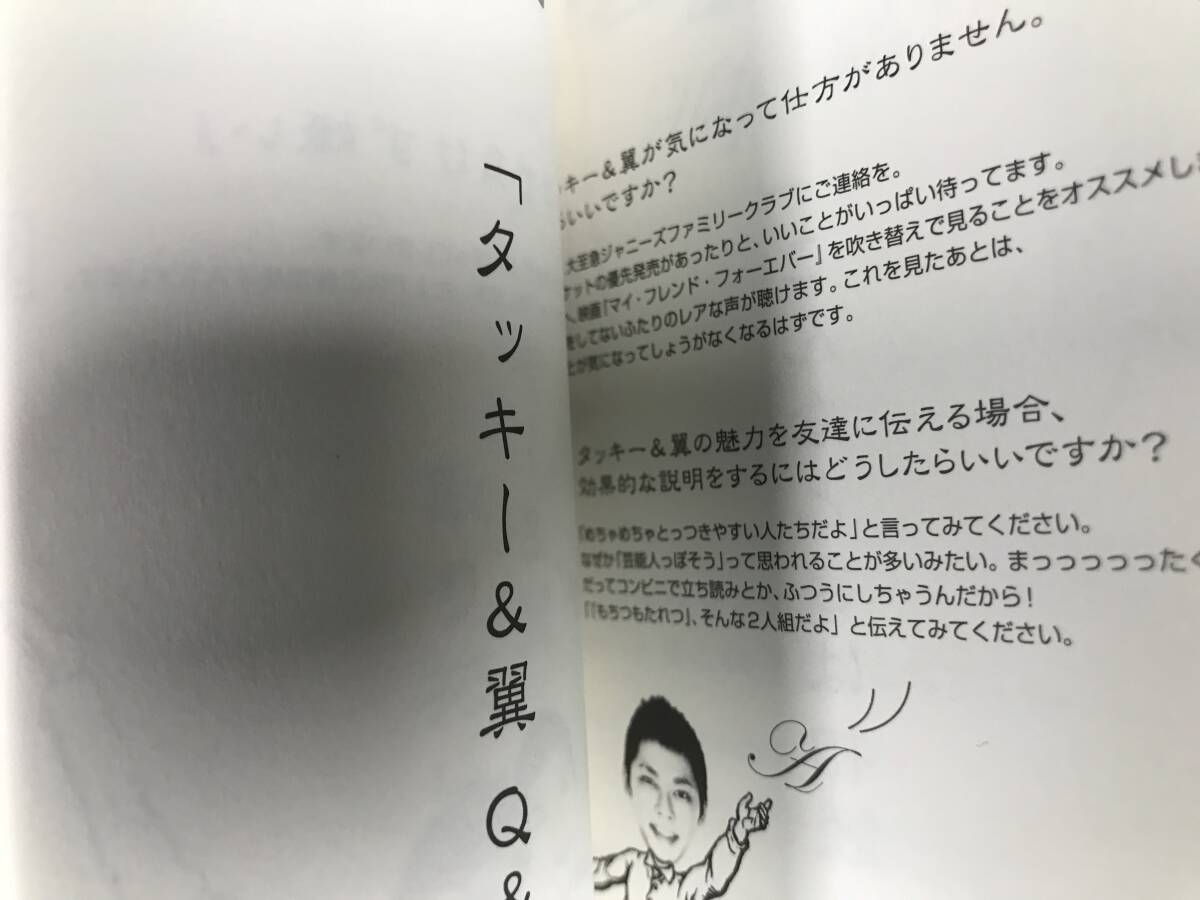 「タッキー&翼 Q&
ッキー&翼が気になって仕方がありません。
らいいですか?
大至急ジャニーズファミリークラブにご連絡を。
ケットの優先発売があったりと、いいことがいっぱい待ってます。
、映画『マイ・フレンド・フォーエバー』を吹き替えで見ることをオススメしま
をしてないふたりのレアな声が聴けます。これを見たあとは、
とが気になってしょうがなくなるはずです。
タッキー&翼の魅力を友達に伝える場合、
効果的な説明をするにはどうしたらいいですか?
「めちゃめちゃとっつきやすい人たちだよ」と言ってみてください。
なぜか「芸能人っぽそう」って思われることが多いみたい。まっっっっったく
だってコンビニで立ち読みとか、ふつうにしちゃうんだから!
「『もちつもたれつ』、そんな2人組だよ」と伝えてみてください。
A